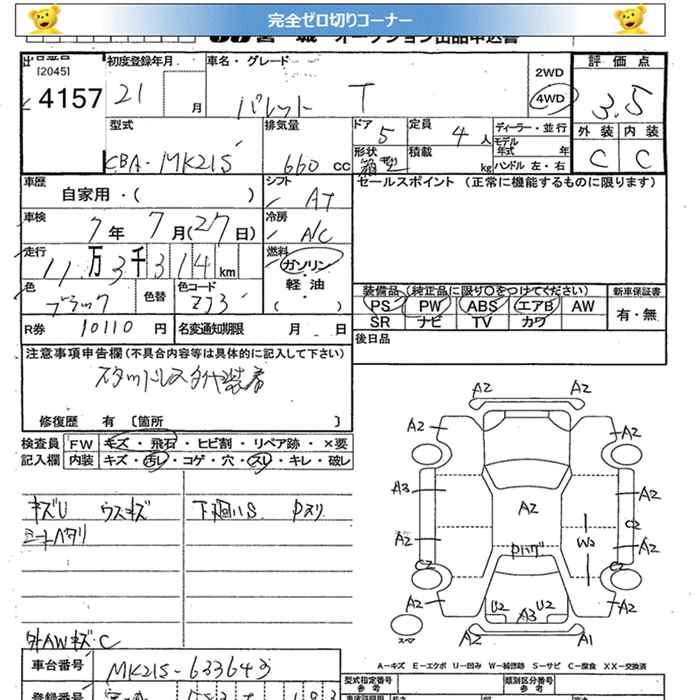 完全ゼロ切りコーナー
宮城 オークション出品申込書
[2045]
4157
初度登録年月
21 月
車名・グレード
パレット T
2WD
4WD
評価点
3.5
外装 内装
C C
型式
CBA-MK21S
排気量
660 cc
ドア 5
定員 4 人
形状 箱型
積載 kg
ディーラー・並行
モデル年式 年
ハンドル 左・右
車歴
自家用・( )
シフト AT
セールスポイント (正常に機能するものに限ります)
車検
7年 7月(27日)
冷房 A/C
走行
11万3千314km
燃料
ガソリン・軽油・( )
色
ブラック
色替
色コード
ZJ3
装備品(純正品に限り○をつけてください)
PS PW ABS エアB AW
SR ナビ TV カワ
新車保証書
有・無
R券 10110 円
名変通知期限 月 日
後日品
注意事項申告欄(不具合内容等は具体的に記入して下さい)
スタットレスタイヤ装着
修復歴 有 [箇所 ]
検査員 FW キズ・飛石・ヒビ割・リペア跡・×要
記入欄 内装 キズ・汚レ・コゲ・穴・スレ・キレ・破レ
キズU ウスキズ 下廻りS Pスリ
シートヘタリ
外AWキズ・C
車台番号 MK21S-633643
登録番号
A2 A2
A2 A2
A3 A2
A2
C2
A2 W2 A2
Pハゲ
C2 C2
A2 U2 U2 A2
A3
スペア
A2 A1
A-キズ E-エクボ U-凹み W-補修跡 S-サビ C-腐食 XX-交換済
型式指定番号 参考
類別区分番号 参考